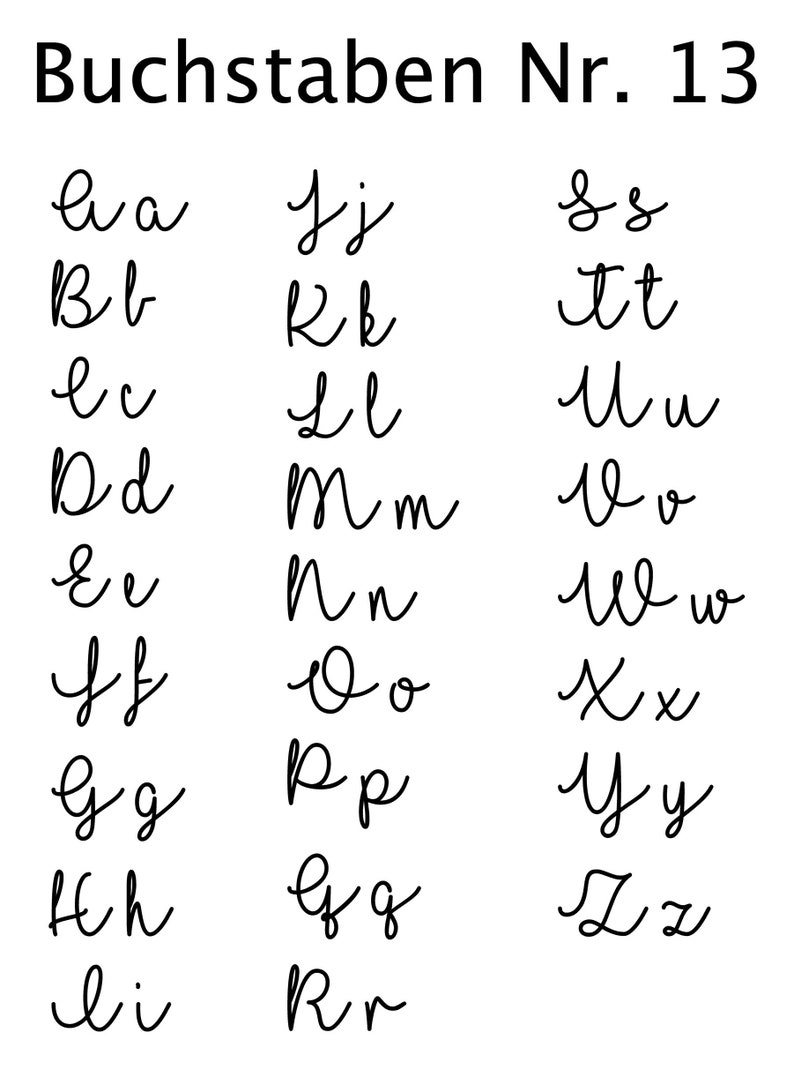 Buchstaben Nr. 13
A a
B b
C c
D d
E e
F f
G g
H h
I i
J j
K k
L l
M m
N n
O o
P p
Q q
R r
S s
T t
U u
V v
W w
X x
Y y
Z z